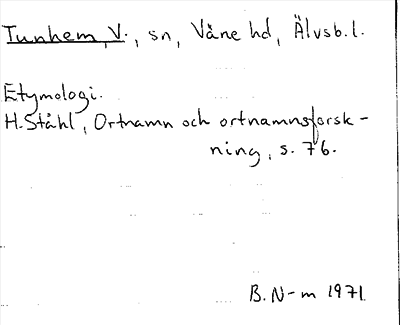 Tunhem, V., sn, Våne hd, Älvsb. l.
Etymologi.
H. Ståhl, Ortnamn och ortnamnsforsk-
ning, s. 76.
B. N-m 1971